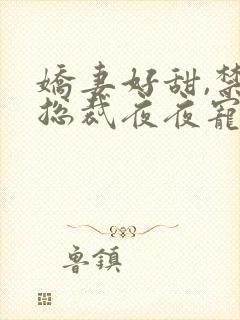 嬌妻好甜,禁
總裁夜夜寵
魯鎮